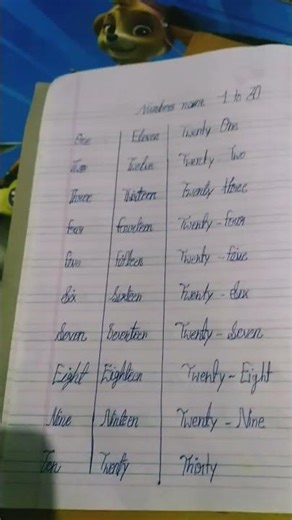 Numbers name 1 to 30
One Eleven Twenty One
Two Twelve Twenty Two
Three Thirteen Twenty three
Four Fourteen Twenty - four
Five Fifteen Twenty - five
Six Sixteen Twenty - Six
Seven Seventeen Twenty - Seven
Eight Eighteen Twenty - Eight
Nine Ninteen Twenty - Nine
Ten Twenty Thirty